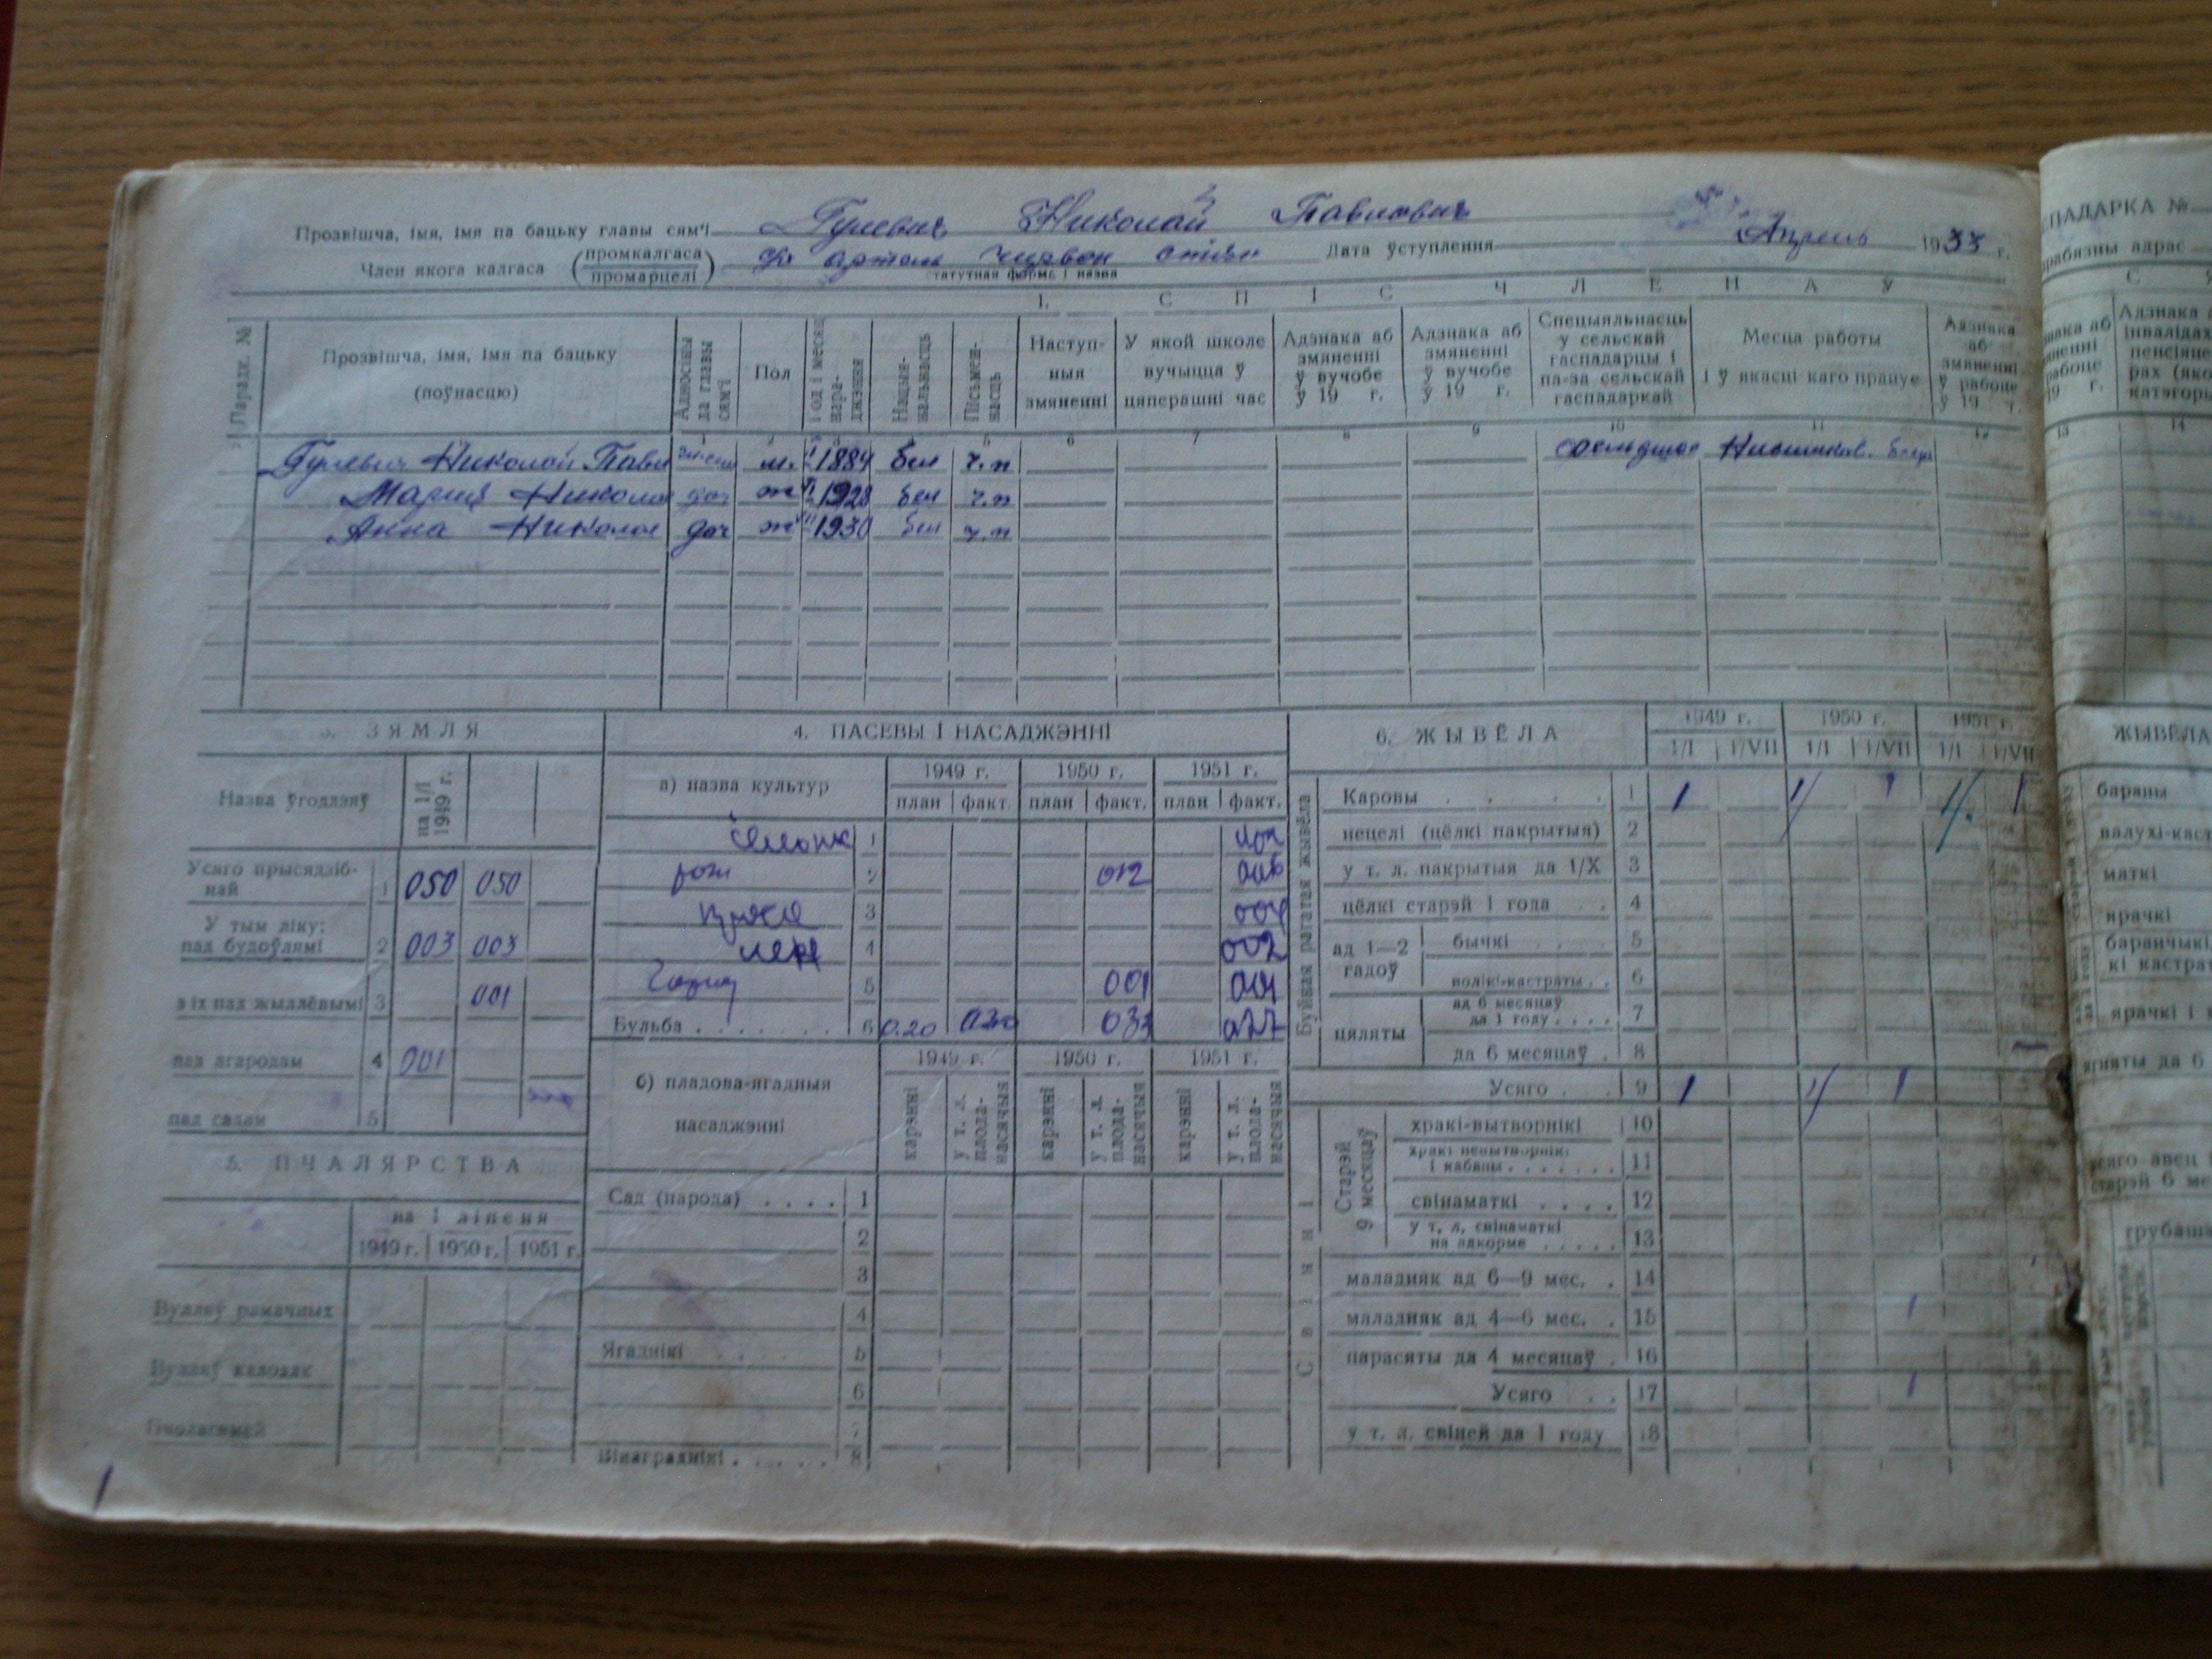 Прозвішча, імя, імя па бацьку главы сям'і Гулевич Николай Павлович
Член якога калгаса (промкалгаса / промарцелі) артель Дата ўступлення Апрель 1933 г.
статутная форма і назва
1. СПІС ЧЛЕНАЎ
Парадк. №
Прозвішча, імя, імя па бацьку (поўнасцю)
Адносіны да главы сям'і
Пол
Год і месяц нараджэння
Нацыянальнасць
Пісьменнасць
Наступныя змяненні
У якой школе вучыцца ў цяперашні час
Адзнака аб змяненні ў вучобе ў 19 г.
Адзнака аб змяненні ў вучобе ў 19 г.
Спецыяльнасць у сельскай гаспадарцы і па-за сельскай гаспадаркай
Месца работы і ў якасці каго працуе
Адзнака аб змяненні ў рабоце ў 19 г.
6 7 8 9 10 11 12
Гулевич Николай Павл м. 1884 бел ч.п фельдшер
Мария Никола доч ж 1928 бел ч.п
Анна Никола доч ж 1930 бел ч.п
ЗЯМЛЯ
Назва ўгоддзяў на 1/I 1949 г.
Усяго прысядзібнай 1 050 050
У тым ліку:
пад будоўлямі 2 003 003
з іх пад жыллёвымі 3 001
пад агародам 4 001
пад садам 5
5. ПЧАЛЯРСТВА
на 1 ліпеня
1949 г. 1950 г. 1951 г.
Вуллёў рамачных
Вуллёў калодак
4. ПАСЕВЫ І НАСАДЖЭННІ
а) назва культур 1949 г. 1950 г. 1951 г.
план факт. план факт. план факт.
1
рож 2 012
3 004
лен 4 002
5 001 001
Бульба 6 0.20 020 033
б) пладова-ягадныя насаджэнні 1949 г. 1950 г. 1951 г.
карэнні у т. л. плоданасячыя карэнні у т. л. плоданасячыя карэнні у т. л. плоданасячыя
Сад (парода) 1
2
3
4
Ягаднікі 5
6
7
Вінаграднікі 8
6. ЖЫВЁЛА 1949 г. 1950 г. 1951 г.
1/I 1/VII 1/I 1/VII 1/I 1/VII
Буйная рагатая жывёла
Каровы 1 1 1 1 1 1
нецелі (цёлкі пакрытыя) 2
у т. л. пакрытыя да 1/X 3
цёлкі старэй 1 года 4
ад 1—2 гадоў бычкі 5
волікі-кастраты 6
цяляты ад 6 месяцаў да 1 году 7
да 6 месяцаў 8
Усяго 9 1 1 1
Свінні
Старэй 9 месяцаў хракі-вытворнікі 10
хракі невытворнікі і кабаны 11
свінаматкі 12
у т. л. свінаматкі на адкорме 13
маладняк ад 6—9 мес. 14
маладняк ад 4—6 мес. 15 1
парасяты да 4 месяцаў 16
Усяго 17 1
у т. л. свіней да 1 году 18
1
ПАДАРКА №
адрас
13 14
ЖЫВЁЛА
бараны
маткі
ярачкі
баранчыкі
ярачкі і